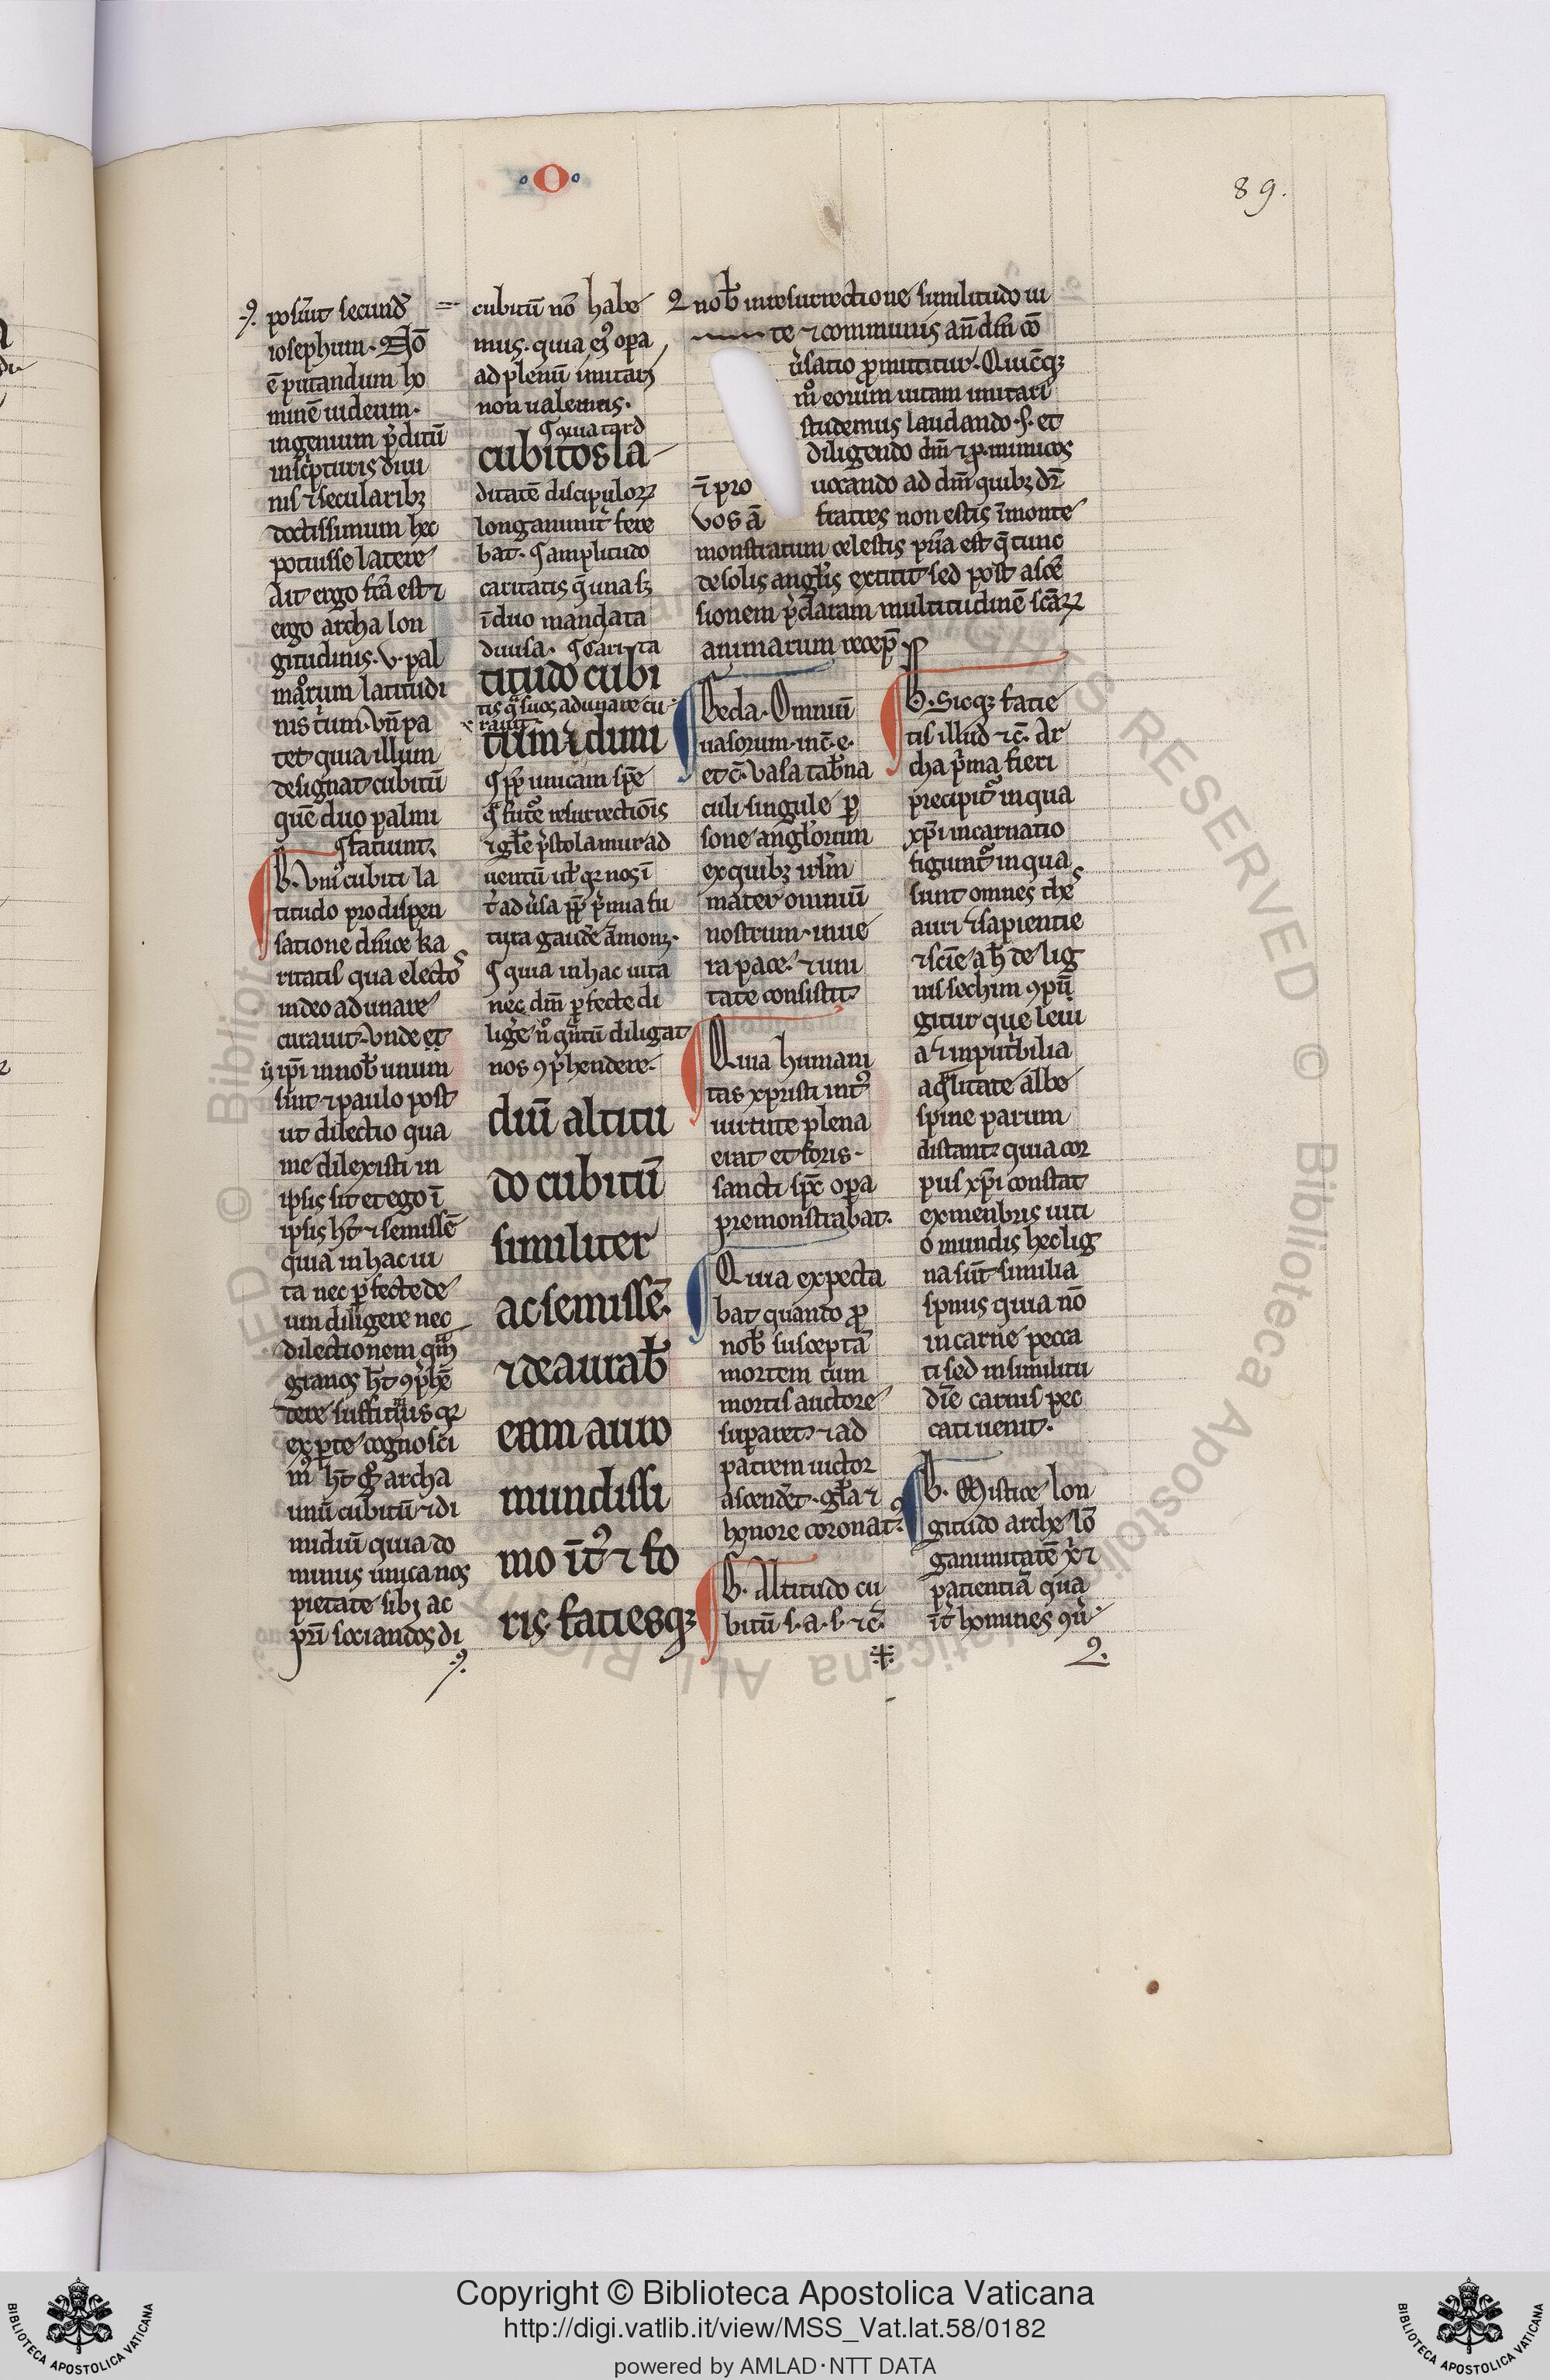 ·O·
89.
posuit secund̄
iosephum. Nō
ē putandum ho
minē iudeum.
ingenium p̄ditū
inscripturis diui
nis ⁊ secularibꝫ
doctissimum hec
potuisse latere
Aut ergo
ergo archa lon
gitudinis .v. pal
morum latitudi
nis
tet quia illum
designat cubitū
quē duo palmi
¶ faciunt.
B. Vnius cubiti la
titudo pro dispen
satione dn̄ice ka
ritatis qua electos
in deo adunare
curauit. Vnde et
ipsi in nob̄ unum
sint ⁊ paulo post
ut dilectio qua
me dilexisti in
ipsis sit et ego ī
ipsis hꝫ ⁊ semissē
quia in hac ui
ta nec ꝑfecte de
um diligere nec
dilectionem qua
gia nos
dere
ex ꝑte cognosci
archa
unū cubitū ⁊ di
midiū quia do
minus unica nos
pietate sibi ac
pri sociandos di
cubitū nō habe
mus. quia eiꝰ oꝑa
ad plenū imitari
non ualemus.
¶ quia tard
cubitos la
ditatē discipuloꝝ
longanimitꝰ fere
bat. ¶ amplitudo
caritatis q̄ una sꝫ
ī duo mandata
diuisa. ¶ Carita
titudo cubi
tis qͣ suos adunare cu
rauit
tum ⁊ dimi
¶ ꝓpꝉ unicam spē
resurrectiōis
⁊ glē p̄stolamur ad
uentū
ad uersa
tura gaude
¶ quia in hac uita
nec dn̄m ꝑfecte di
lige diligat
nos ꝯp̄hendere.
diū altitu
do cubitū
similiter
ac semissē.
⁊ deaurab̄
eam auro
mundissi
mo īt̉ ⁊ fo
ris. faciesqꝫ
2 nob̄ in resurrectione similitudo ui
te ⁊ communis
ꝓmittitur. Quicūqꝫ
eorum uitam imitari
studemus laudando .s. et
diligendo dm̄ ⁊ ꝓximicos
ī pro uocando ad dm̄ quibꝫ dr̄
vos ā fratres non estis ī monte
monstratum celestis pr̄ia est q̄ tunc
de solis angl̄is extitit sed post ascē
sionem p̄claram multitudinē scāꝝ
animarum recep̄.
Beda. Omniū
uasorum. inc̄. e.
et c̄. vasa tab̄na
culi singule ꝑ
sone angl̄orum
ex quibꝫ irl̄m
mater omniū
nostrum. in ue
ra pace. ⁊ uni
tate consistit.
Quia humani
tas xpisti intꝰ
uirtute plena
erat et foris.
sancti sp̄c oꝑa
premonstrabat.
Quia expecta
bat quando ꝓ
nob̄ susceptā
mortem cum
mortis auctore
suꝑaret ⁊ ad
patrem uictor
ascenderet. gl̄a ⁊
honore coronatꝰ.
B. Altitudo cu
bitū .s. a. s. ⁊c̄.
B. Sicqꝫ facie
tis illud ⁊c̄. Ar
cha p̄ma fieri
precipitꝰ in qua
xp̄i incarnatio
figuratꝰ in qua
sunt omnes thes
auri sapientie
⁊ scīe ab̄. de lig
nis sechim ꝯpū
gitur que leui
a ⁊ inputribilia
a qualitate albe
spine parum
distant quia cor
pus xp̄i constat
ex menbris uiti
o mundis hec lig
na sūt similia
spinis quia nō
in carne pecca
ti sed in similitu
dīe carnis pec
cati uenit.
B. Mistice lon
gitudo arche lō
ganimitatē xp̄i ⁊
patientiā qua
īt̉ homines ꝯū
2.
Copyright © Biblioteca Apostolica Vaticana
http://digi.vatlib.it/view/MSS_Vat.lat.58/0182
powered by AMLAD·NTT DATA